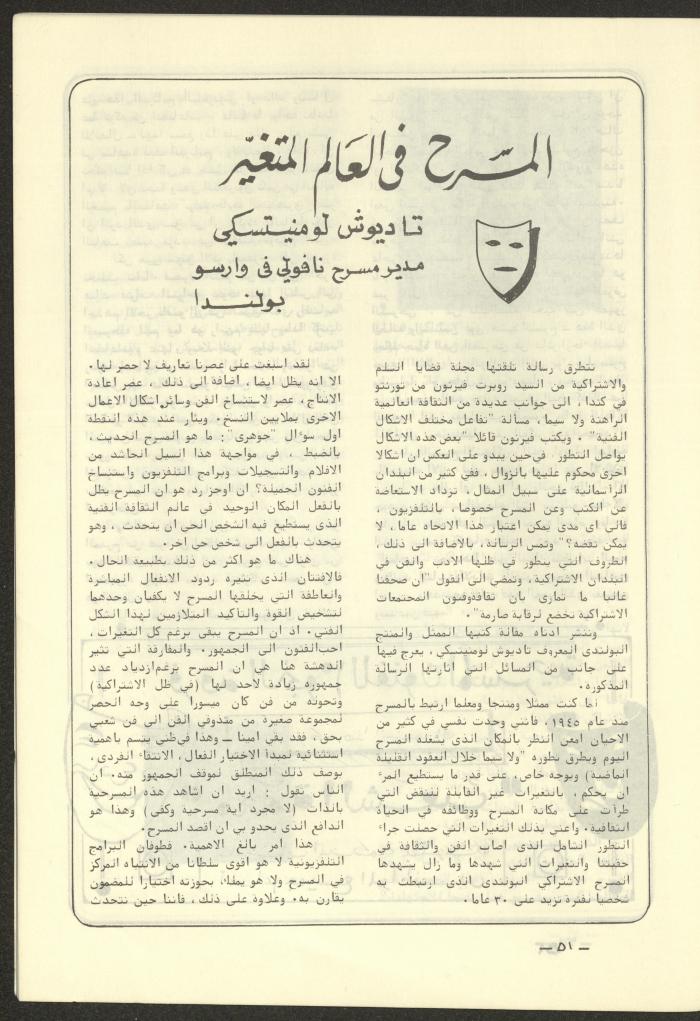 المسّرح فى العَالم المتغيّر
تاديوش لومنيتسكي
مدير مسرح نافولي فى وارسو
بولندا
تتطرق رسالة تلقتها مجلة قضايا السلم
والاشتراكية من السيد روبرت فيرتون من تورنتو
في كندا ، الى جوانب عديدة من الثقافة العالمية
الراهنة ولا سيما، مسألة "تفاعل مختلف الاشكال
الفنية" . ويكتب فيرتون قائلا "بعض هذه الاشكال
يواصل التطور في حين يبدو على العكس ان اشكالا
اخرى محكوم عليها بالزوال، ففي كثير من البلدان
الرأسمالية على سبيل المثال، تزداد الاستعاضة
عن الكتب وعن المسرح خصوصا، بالتلفزيون ،
فالى اى مدى يمكن اعتبار هذا الاتجاه عاما، لا
يمكن نقضه؟" وتمس الرسالة، بالاضافة الى ذلك ،
الظروف التي يتطور في ظلها الادب والفن في
البلدان الاشتراكية، وتمضي الى القول "ان صحفنا
غالبا ما تمارى بان ثقافةوفنون المجتمعات
الاشتراكية تخضع لرقابة صارمة" .
وننشر ادناه مقالة كتبها الممثل والمنتج
البولندى المعروف تاديوش لومنيتسكي، يعرج فيها
على جانب من المسائل التي اثارتها الرسالة
المذكوره .
لما كنت ممثلا ومنتجا ومعلما ارتبط بالمسرح
منذ عام ١٩٤٥ ، فانني وجدت نفسي في كثير من
الاحيان امعن النظر بالمكان الذى يشغله المسرح
اليوم وبطرق تطوره "ولا سيما خلال العقود القليلة
الماضية) وبوجه خاص، على قدر ما يستطيع المرء
ان يحكم ، بالتغيرات غير القابلة للنقض التي
طرأت على مكانة المسرح ووظائفه في الحياة
الثقافية. واعني بذلك التغيرات التي حصلت جراء
التطور الشامل الذى اصاب الفن والثقافة في
حقبتنا والتغيرات التي شهدها وما زال يشهدها
المسرح الاشتراكي البولندى الذى ارتبطت به
شخصيا لفترة تزيد على ٣٠ عاما .
لقد اسبغت على عصرنا تعاريف لا حصر لها.
الا انه يظل ايضا، اضافة الى ذلك ، عصر اعادة
الانتاج، عصر لاستنساخ الفن وسائر اشكال الاعمال
الاخرى بملايين النسخ. ويثار عند هذه النقطة
اول سؤال "جوهرى": ما هو المسرح الحديث،
بالضبط ، في مواجهة هذا السيل الحاشد من
الافلام والتسجيلات وبرامج التلفزيون واستنساخ
الفنون الجميلة؟ ان اوجز رد هو ان المسرح يظل
بالفعل المكان الوحيد في عالم الثقافة الفنية
الذى يستطيع فيه الشخص الحي ان يتحدث ، وهو
يتحدث بالفعل الى شخص حي اخر.
هناك ما هو اكثر من ذلك بطبيعة الحال .
فالافتتان الذى تثيره ردود الانفعال المباشرة
والعاطفة التي يخلقها المسرح لا يكفيان وحدهما
لتشخيص القوة والتأكيد المتلازمين لهذا الشكل
الفني. اذ ان المسرح يبقى برغم كل التغيرات ،
احب الفنون الى الجمهور. والمفارقة التي تثير
الدهشة هنا هي ان المسرح برغم ازدياد عدد
جمهوره زيادة لاحد لها (في ظل الاشتراكية)
وتحوله من فن كان ميسورا على وجه الحصر
لمجموعة صغيرة من متذوقي الفن الى فن شعبي
بحق ، فقد بقي امينا ــ وهذا في ظني يتسم باهمية
استثنائية لمبدأ الاختيار الفعال ، الانتقاء الفردى ،
بوصف ذلك المنطلق لموقف الجمهور منه. ان
الناس تقول : اريد ان اشاهد هذه المسرحية
بالذات (لا مجرد اية مسرحية وكفى) وهذا هو
الدافع الذى يحدو بي ان اقصد المسرح.
هذا امر بالغ الاهمية. فطوفان البرامج
التلفزيونية لا هو اقوى سلطانا من الانتباه المركز
في المسرح ولا هو يملك بحوزته اختيارا للمضمون
يقارن به. وعلاوة على ذلك ، فاننا حين نتحدث
ــ ٥١ ــ